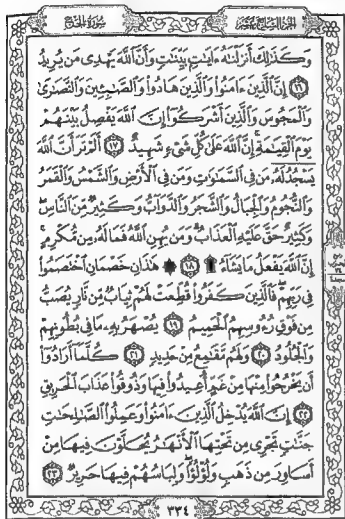 سُورَةُ الحَجّ
الجزء السابع عشر
وَكَذَٰلِكَ أَنزَلْنَٰهُ ءَايَٰتٍۭ بَيِّنَٰتٍ وَأَنَّ ٱللَّهَ يَهْدِى مَن يُرِيدُ
١٦ إِنَّ ٱلَّذِينَ ءَامَنُوا۟ وَٱلَّذِينَ هَادُوا۟ وَٱلصَّٰبِـِٔينَ وَٱلنَّصَٰرَىٰ
وَٱلْمَجُوسَ وَٱلَّذِينَ أَشْرَكُوٓا۟ إِنَّ ٱللَّهَ يَفْصِلُ بَيْنَهُمْ
يَوْمَ ٱلْقِيَٰمَةِ ۚ إِنَّ ٱللَّهَ عَلَىٰ كُلِّ شَىْءٍ شَهِيدٌ ١٧ أَلَمْ تَرَ أَنَّ ٱللَّهَ
يَسْجُدُ لَهُۥ مَن فِى ٱلسَّمَٰوَٰتِ وَمَن فِى ٱلْأَرْضِ وَٱلشَّمْسُ وَٱلْقَمَرُ
وَٱلنُّجُومُ وَٱلْجِبَالُ وَٱلشَّجَرُ وَٱلدَّوَآبُّ وَكَثِيرٌ مِّنَ ٱلنَّاسِ ۖ
وَكَثِيرٌ حَقَّ عَلَيْهِ ٱلْعَذَابُ ۗ وَمَن يُهِنِ ٱللَّهُ فَمَا لَهُۥ مِن مُّكْرِمٍ ۚ
إِنَّ ٱللَّهَ يَفْعَلُ مَا يَشَآءُ ۩ ١٨ ۞ هَٰذَانِ خَصْمَانِ ٱخْتَصَمُوا۟
فِى رَبِّهِمْ ۖ فَٱلَّذِينَ كَفَرُوا۟ قُطِّعَتْ لَهُمْ ثِيَابٌ مِّن نَّارٍ يُصَبُّ
مِن فَوْقِ رُءُوسِهِمُ ٱلْحَمِيمُ ١٩ يُصْهَرُ بِهِۦ مَا فِى بُطُونِهِمْ
وَٱلْجُلُودُ ٢٠ وَلَهُم مَّقَٰمِعُ مِنْ حَدِيدٍ ٢١ كُلَّمَآ أَرَادُوٓا۟
أَن يَخْرُجُوا۟ مِنْهَا مِنْ غَمٍّ أُعِيدُوا۟ فِيهَا وَذُوقُوا۟ عَذَابَ ٱلْحَرِيقِ
٢٢ إِنَّ ٱللَّهَ يُدْخِلُ ٱلَّذِينَ ءَامَنُوا۟ وَعَمِلُوا۟ ٱلصَّٰلِحَٰتِ
جَنَّٰتٍ تَجْرِى مِن تَحْتِهَا ٱلْأَنْهَٰرُ يُحَلَّوْنَ فِيهَا مِنْ
أَسَاوِرَ مِن ذَهَبٍ وَلُؤْلُؤًا ۖ وَلِبَاسُهُمْ فِيهَا حَرِيرٌ ٢٣
٣٣٤